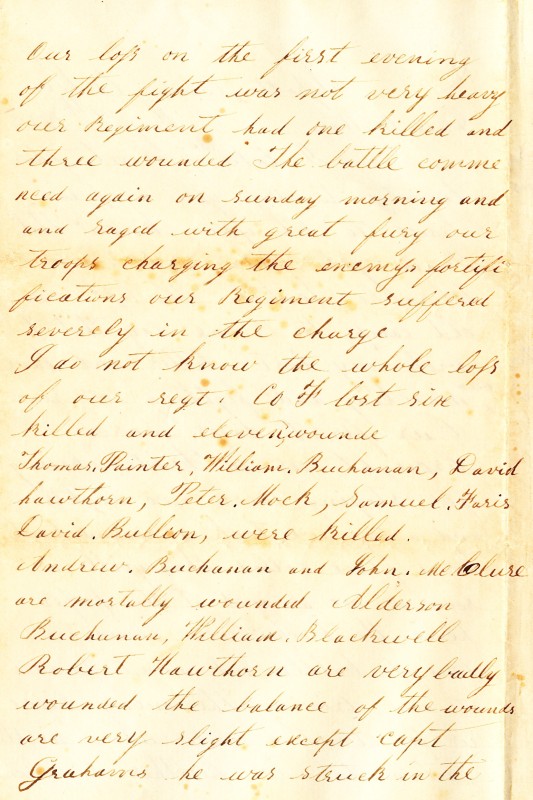 Our loss on the first evening
of the fight was not very heavy
our Regiment had one killed and
three wounded The battle comme
need again on sunday morning and
and raged with great fury our
troops charging the enemys fortifi
fications our Regiment suffered
severely in the charge
I do not know the whole loss
of our regt. Co F lost six
killed and eleven wounde
Thomas. Painter, William. Buchanan, David
hawthorn, Peter. Mock, Samuel. Faris
David. Bulleon, were killed.
Andrew. Buchanan and John. McClure
are mortally wounded Alderson
Buchanan, William. Blackwell
Robert Hawthorn are very badly
wounded the balance of the wounds
are very slight except capt
Grahams he was struck in the